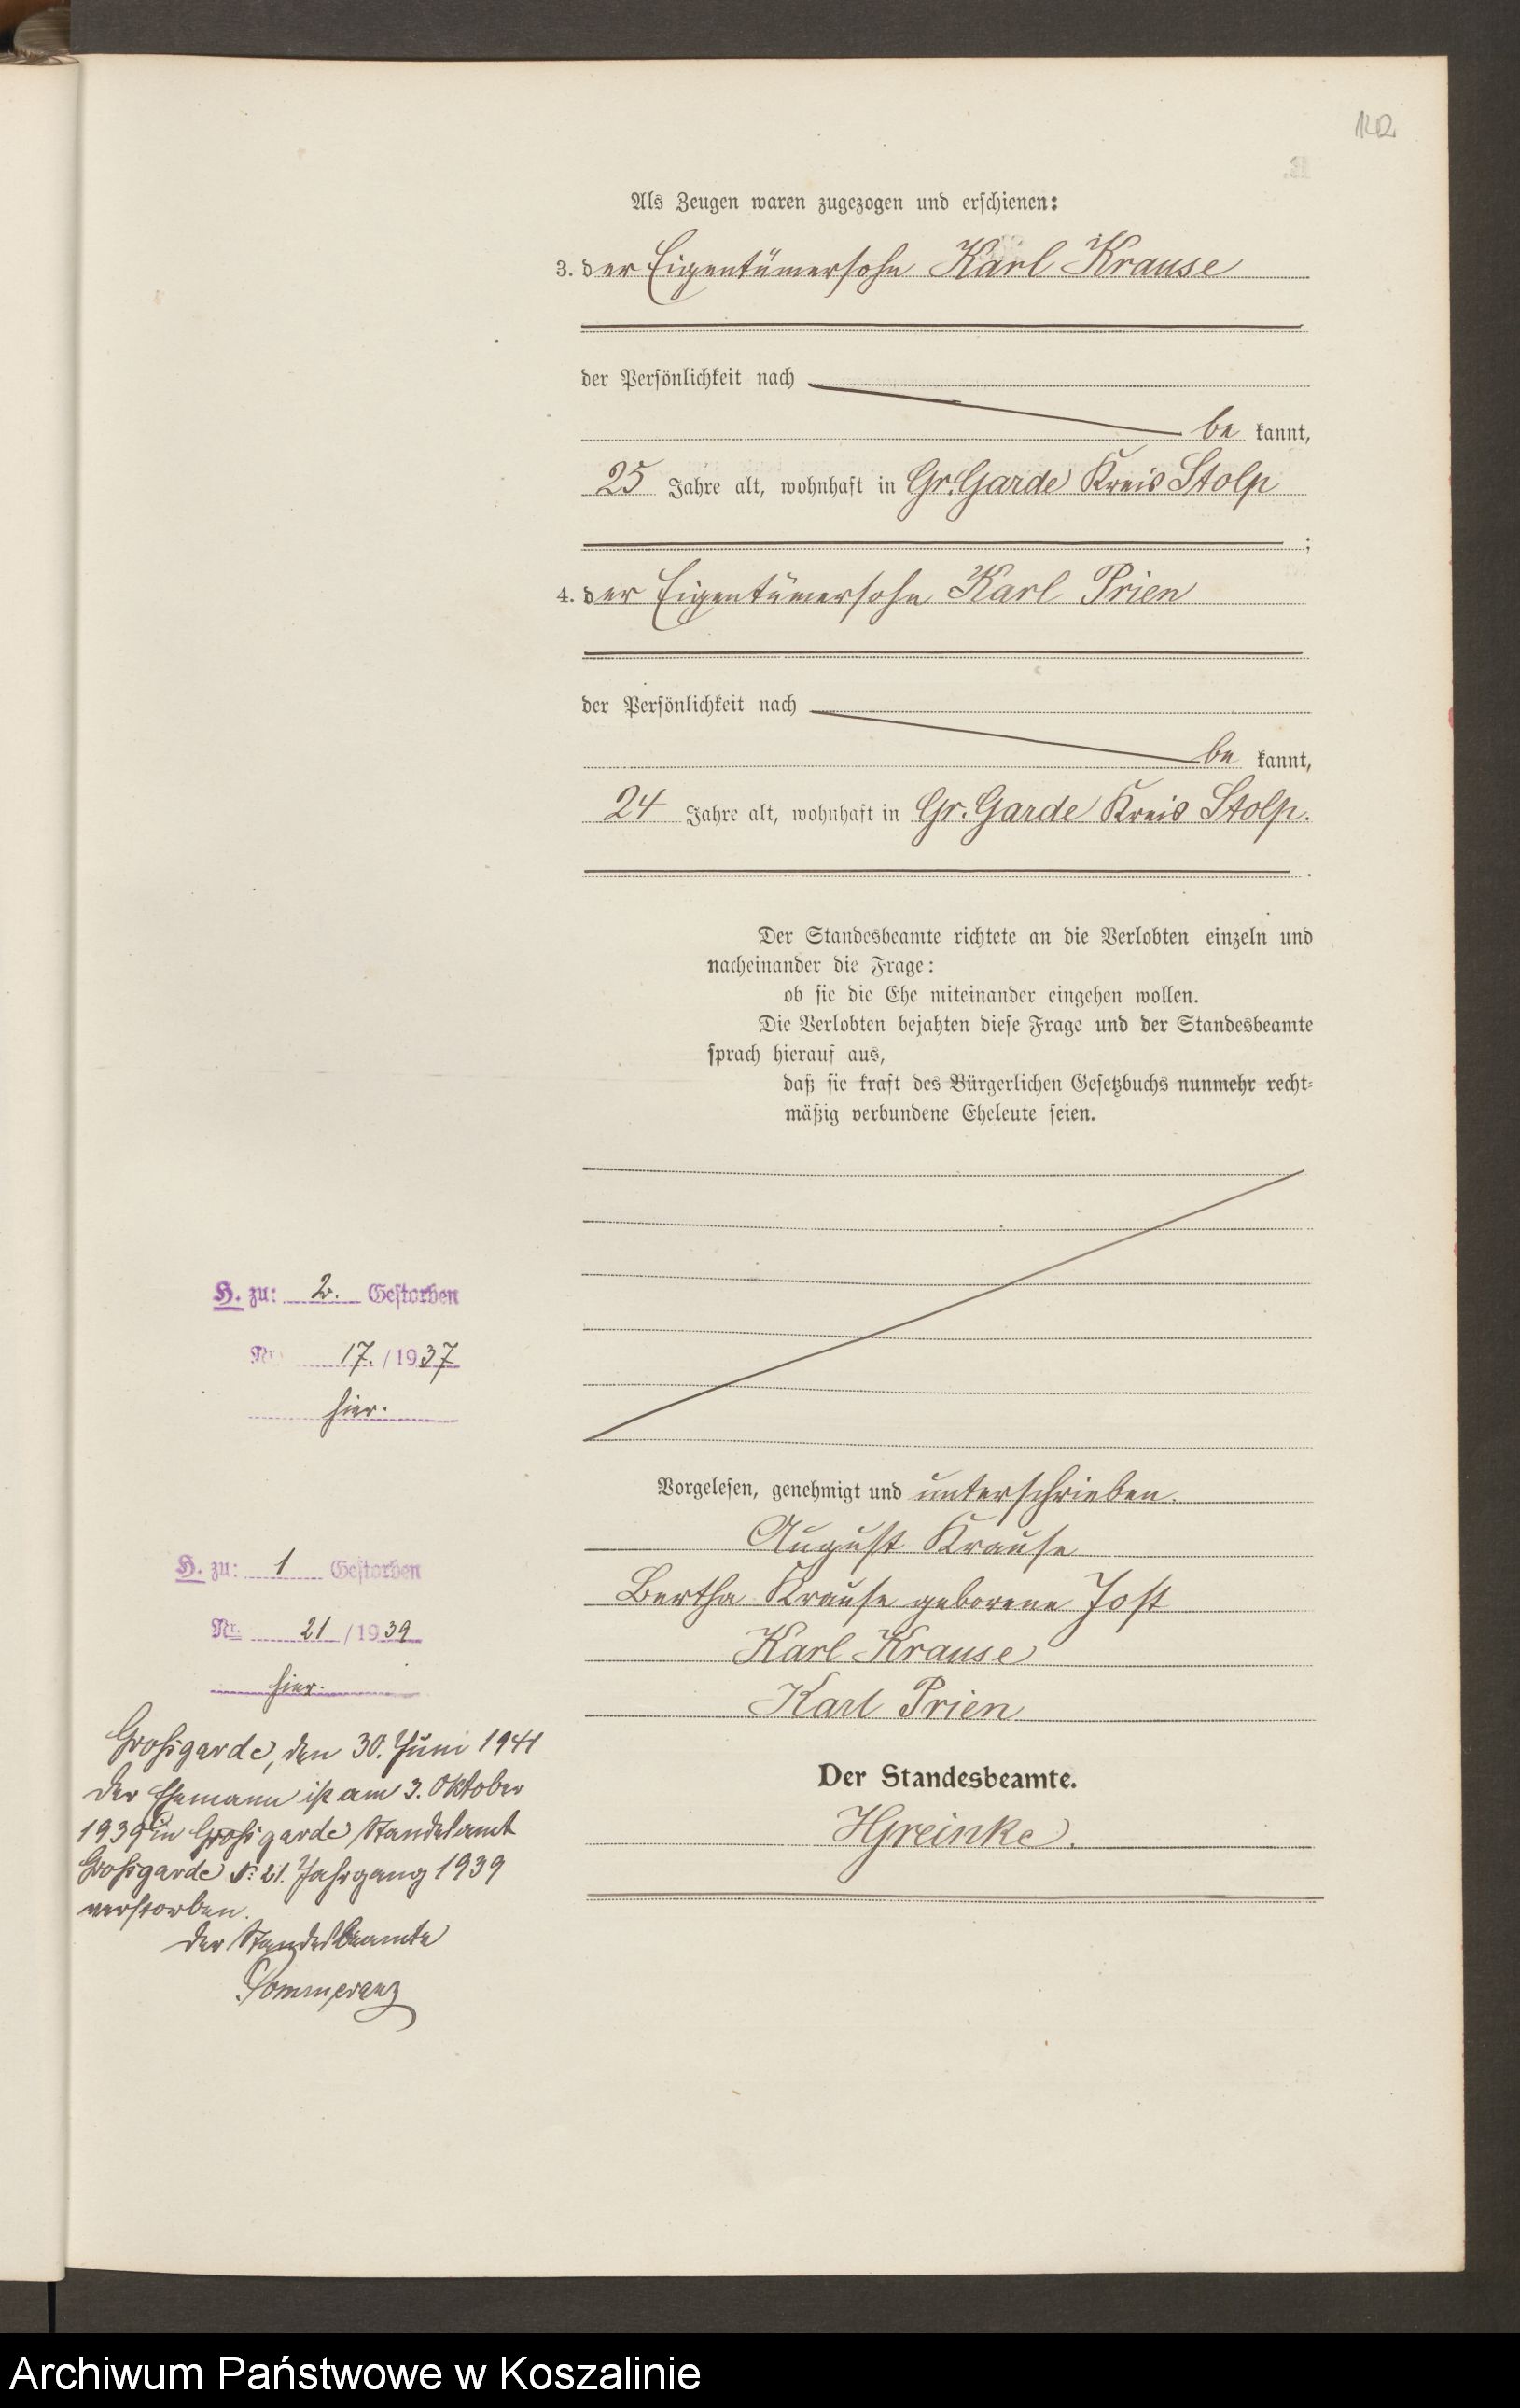 142
Als Zeugen waren zugezogen und erschienen:
3. der Eigentümersohn Karl Krause
der Persönlichkeit nach
be kannt,
25 Jahre alt, wohnhaft in Gr. Garde Kreis Stolp
;
4. der Eigentümersohn Karl Prien
der Persönlichkeit nach
be kannt,
24 Jahre alt, wohnhaft in Gr. Garde Kreis Stolp.
.
Der Standesbeamte richtete an die Verlobten einzeln und
nacheinander die Frage:
ob sie die Ehe miteinander eingehen wollen.
Die Verlobten bejahten diese Frage und der Standesbeamte
sprach hierauf aus,
daß sie kraft des Bürgerlichen Gesetzbuchs nunmehr recht=
mäßig verbundene Eheleute seien.
Vorgelesen, genehmigt und unterschrieben.
August Krause
Bertha Krause geborene Jost
Karl Krause
Karl Prien
Der Standesbeamte.
HGreinke.
H. zu: 2. Gestorben
Nr. 17. /1937
hier.
H. zu: 1 Gestorben
Nr. 21 /1939
hier.
Großgarde, den 30. Juni 1941
Der Ehemann ist am 3. Oktober
1939 in Großgarde Standesamt
Großgarde Nr. 21. Jahrgang 1939
verstorben.
Der Standesbeamte
Pommeranz
Archiwum Państwowe w Koszalinie